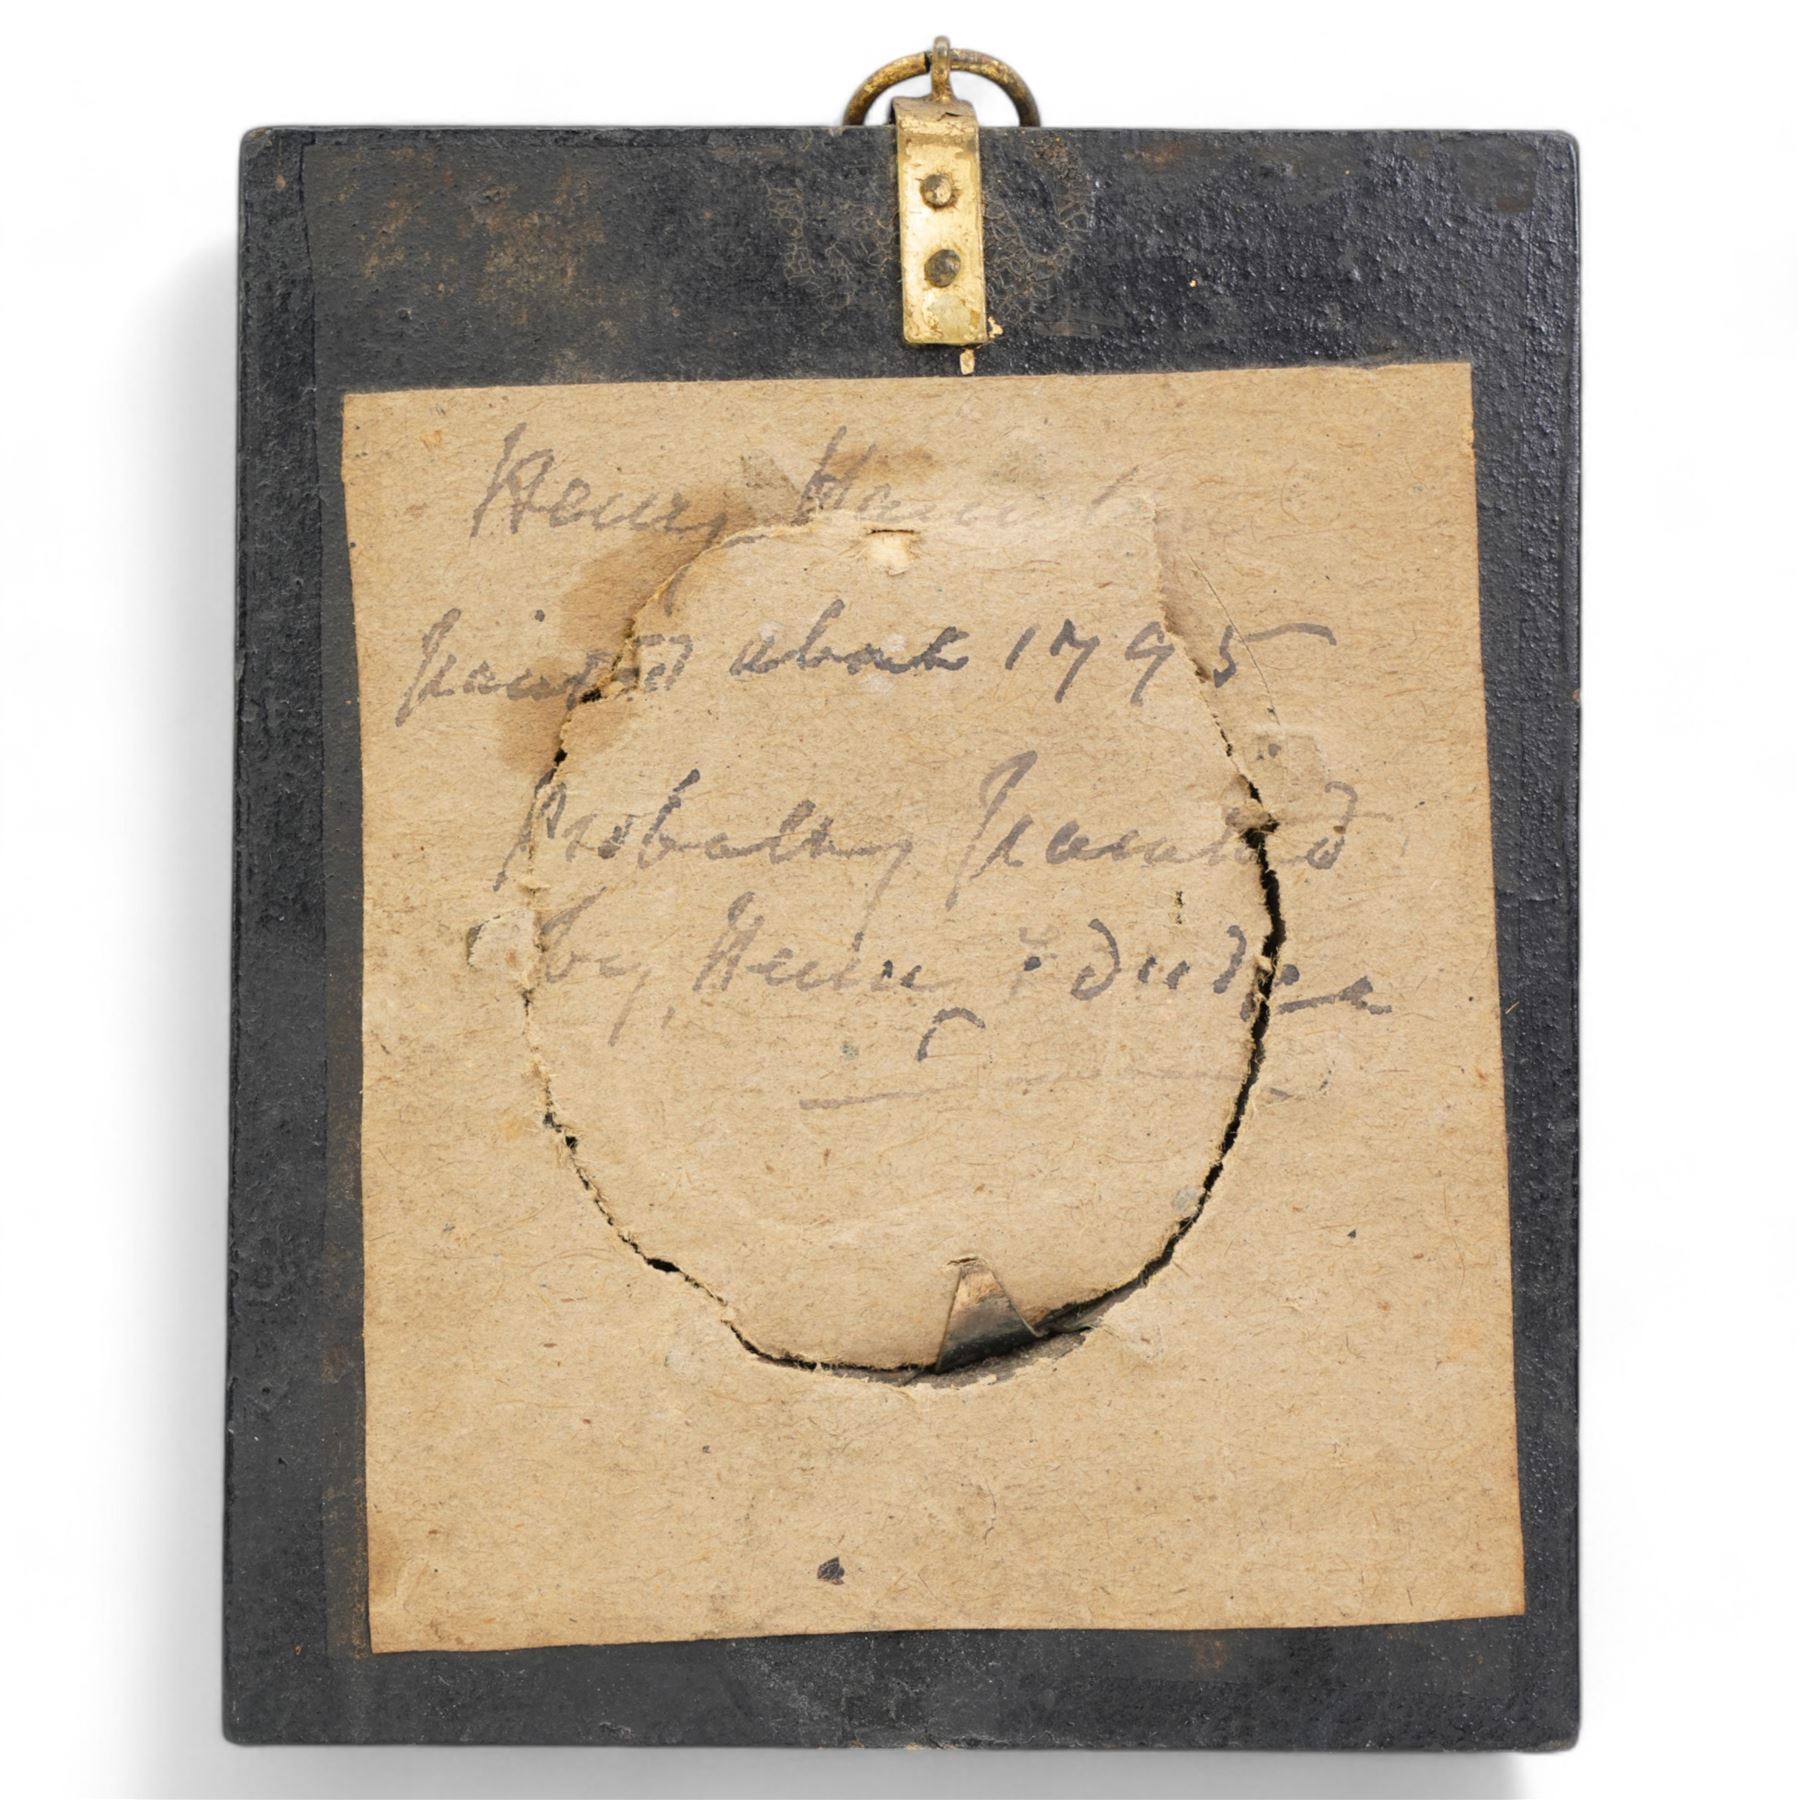 Henry
painted about 1795
Probably painted
by Henry